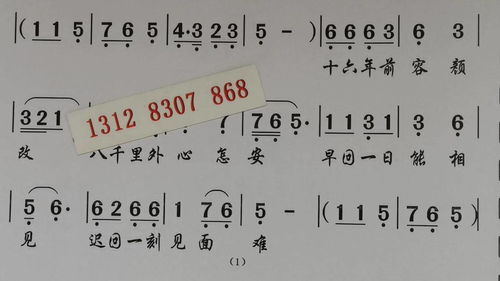 |(1 1 5|7 6 5|4·3 2 3|5 -)|6 6 6 3|6 3
十六年前 容颜
|3 2 1 7|7 6 5·|1 1 3 1|3 6|
改 八千里外 心 怎 安 早回一日 能 相
|5 6·|6 2 6 6|1 7 6|5 -|(1 1 5|7 6 5)|
见 迟回一刻 见 面 难
1312 8307 868
(1)